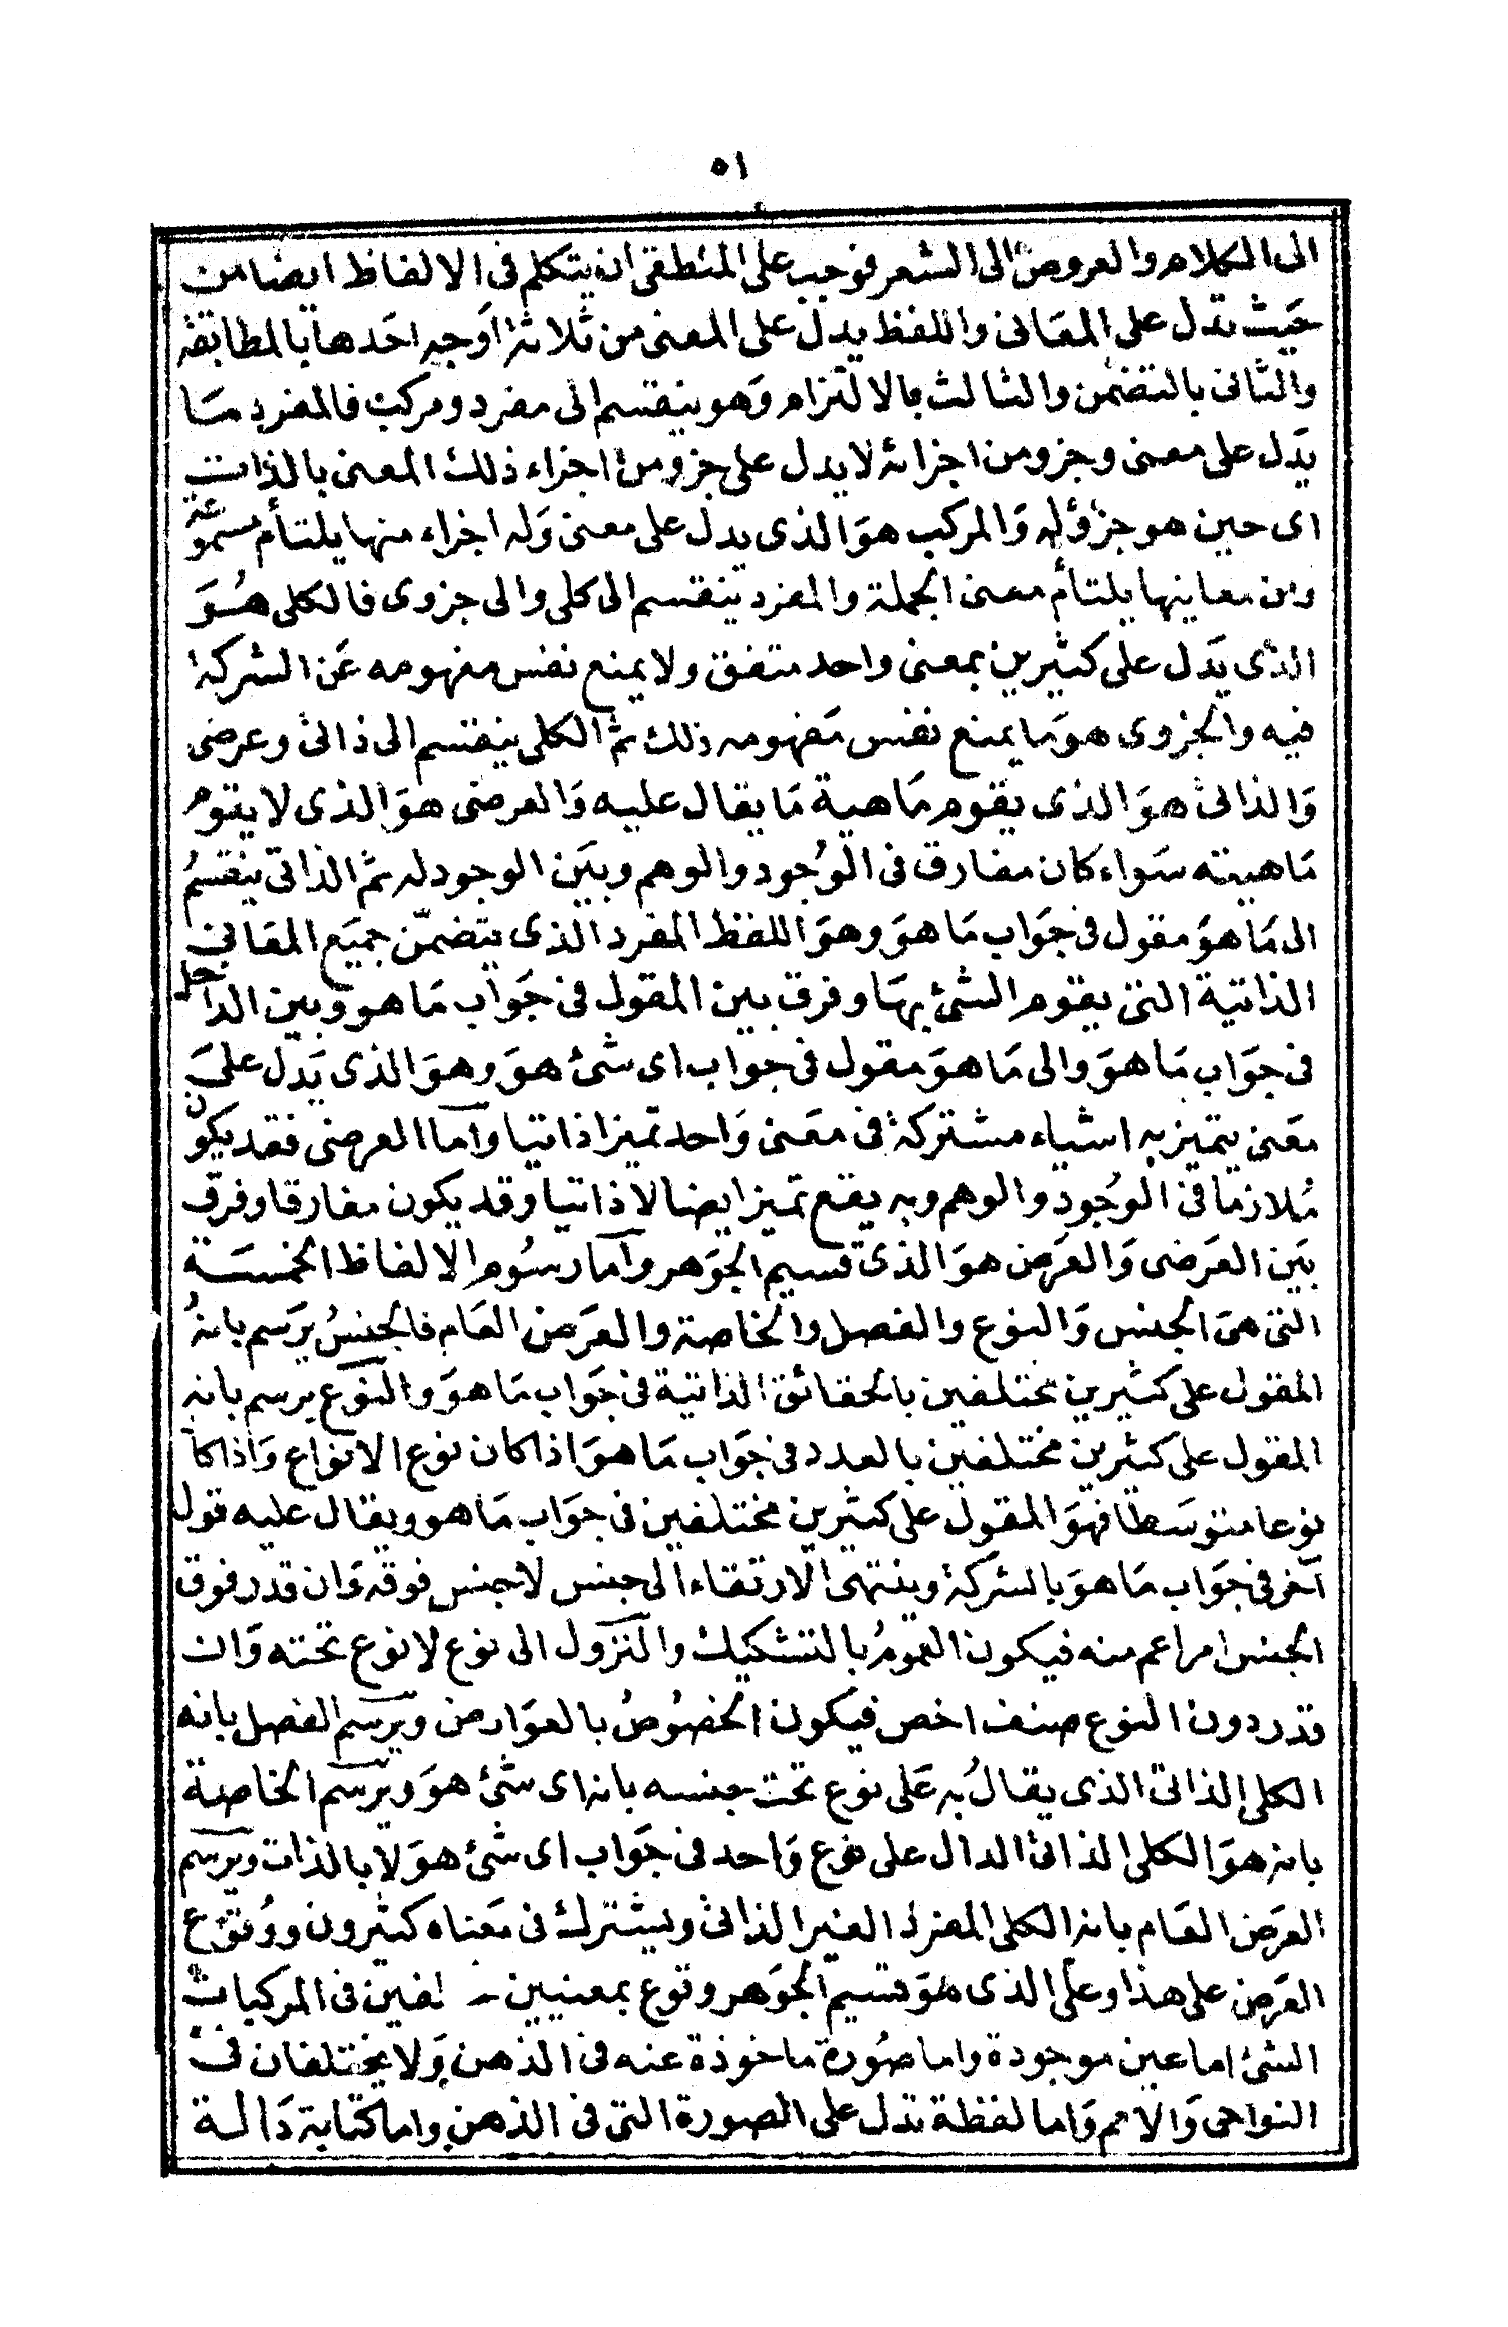 ٥١
الى الكلام والعروض الى الشعر فوجب على المنطقى ان يتكلم فى الالفاظ ايضا من
حيث تدل على المعانى واللفظ يدل على المعنى من ثلاثة اوجه احدها بالمطابقة
والثانى بالتضمن والثالث بالالتزام وهو ينقسم الى مفرد ومركب فالمفرد ما
يدل على معنى وجزو من اجزائه لا يدل على جزو من اجزاء ذلك المعنى بالذات
اى حين هو جزؤله والمركب هو الذى يدل على معنى وله اجزاء منها يلتأم مسموعه
ومن معاينها يلتأم معنى الجملة والمفرد ينقسم الى كلى والى جزوى فالكلى هو
الذى يدل على كثيرين بمعنى واحد متفق ولا يمنع نفس مفهومه عن الشركة
فيه والجزوى هو ما يمنع نفس مفهومه ذلك ثم الكلى ينقسم الى ذاتى وعرضى
والذاتى هو الذى يقوم ماهية ما يقال عليه والعرضى هو الذى لا يقوم
ماهيته سواء كان مفارق فى الوجود والوهم وبين الوجود له ثم الذاتى ينقسم
الى ما هو مقول فى جواب ما هو وهو اللفظ المفرد الذى يتضمن جميع المعانى
الذاتية التى يقوم الشئ بها وفرق بين المقول فى جواب ما هو وبين الداخل
فى جواب ما هو والى ما هو مقول فى جواب اى شئ هو وهو الذى يدل على
معنى يتميز به اشياء مشتركة فى معنى واحد تميزا ذاتيا واما العرضى فقد يكون
ملازما فى الوجود والوهم وبه يقع تميز ايضا لا ذاتيا وقد يكون مفارقا وفرق
بين العرضى والعرض هو الذى قسيم الجوهر واما رسوم الالفاظ الخمسة
التى هى الجنس والنوع والفصل والخاصة والعرض العام فالجنس يرسم بانه
المقول على كثيرين مختلفين بالحقائق الذاتية فى جواب ما هو والنوع يرسم بانه
المقول على كثيرين مختلفين بالعدد فى جواب ما هو اذا كان نوع الانواع واذا كا
نوعا متوسطا فهو المقول على كثيرين مختلفين فى جواب ما هو ويقال عليه قول
آخر فى جواب ما هو بالشركة وينتهى الارتقاء الى جنس لا جنس فوقه وان قدر فوق
الجنس امر اعم منه فيكون العموم بالتشكيك والنزول الى نوع لا نوع تحته وان
قدر دون النوع صنف اخص فيكون الخصوص بالعوارض ويرسم الفصل بانه
الكلى الذاتى الذى يقال به على نوع تحت جنسه بانه اى شئ هو ويرسم الخاصة
بانه هو الكلى الذاتى الدال على نوع واحد فى جواب اى شئ هو لا بالذات ويرسم
العرض العام بانه الكلى المفرد الغير الذاتى ويشترك فى معناه كثيرون ووقوع
العرض على هذا وعلى الذى هو قسيم الجوهر وقوع بمعنيين لفين فى المركبات
الشئ اما عين موجودة واما صورة ماخوذة عنه فى الذهن ولا يختلفان فى
النواحى والامم واما لفظة تدل على الصورة التى فى الذهن واما كتابة دالة